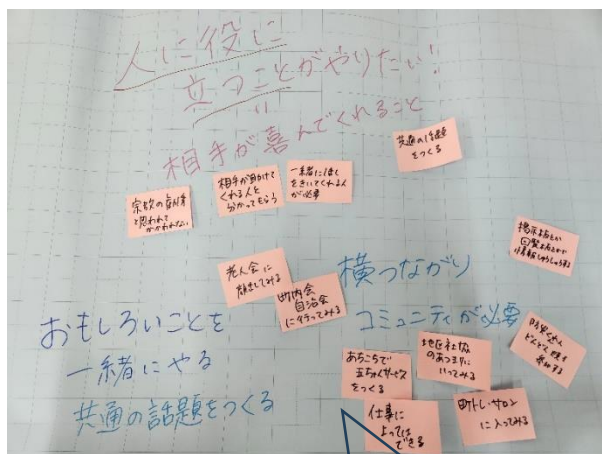 人に役に
立つことがやりたい!
〃
相手が喜んでくれること
共通の話題
をつくる
宗教の勧誘
で思われて
かかわれない
相手が助けて
くれる人と
分かってもらう
一緒に話
をきいてくれる人
が必要
掲示板とか
回覧板とかで
老人会に
顔出してみる
町内会
自治会
に行ってみる
横つながり
コミュニティが必要
おもしろいことを
一緒にやる
共通の話題をつくる
あちこちで
サービス
をつくる
地区社協
のあつまりに
いってみる
防災
どんどん
参加する
仕事に
よっては
できる
町トレ・サロン
に入ってみる